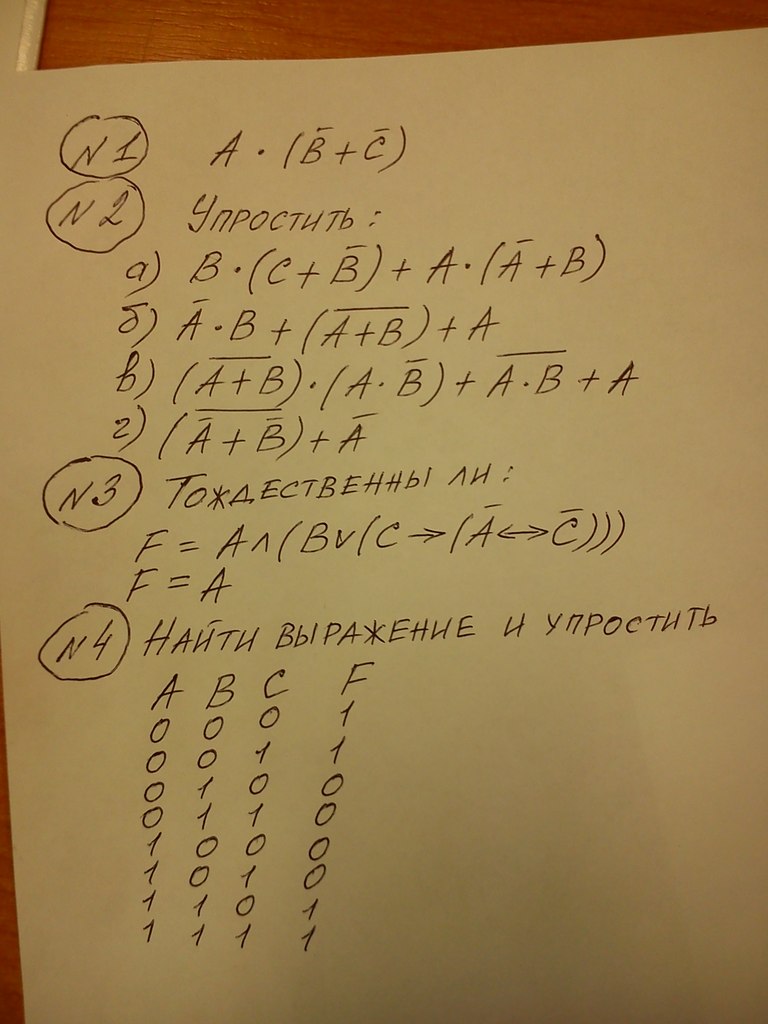 N1 A · (B̅ + C̅)
N2 Упростить:
а) B · (C + B̅) + A · (A̅ + B)
б) A̅ · B + (A̅+̅B̅) + A
в) (A̅+̅B̅) · (A · B̅) + A̅·̅B̅ + A
г) (\overline{A̅ + B̅}) + A̅
N3 Тождественны ли:
F = A ∧ (B ∨ (C → (A̅ ↔ C̅)))
F = A
N4 Найти выражение и упростить
A B C F
0 0 0 1
0 0 1 1
0 1 0 0
0 1 1 0
1 0 0 0
1 0 1 0
1 1 0 1
1 1 1 1